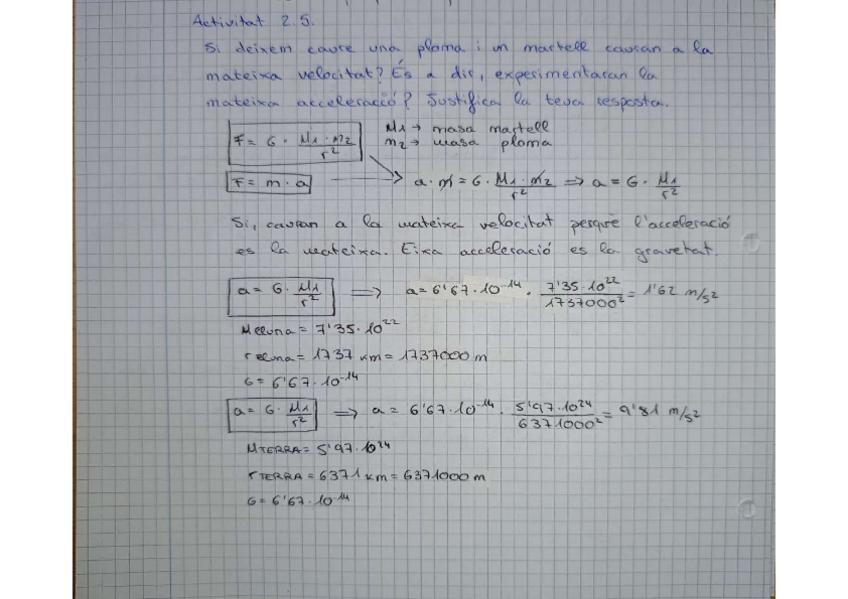 Activitat 2.5.
Si deixem caure una ploma i un martell cauran a la
mateixa velocitat? És a dir, experimentaran la
mateixa acceleració? Justifica la teva resposta.
F = G · M1 · m2 / r²
M1 → masa martell
m2 → masa ploma
F = m · a
a · m = G · M1 · m2 / r² ⇒ a = G · M1 / r²
Si, cauran a la mateixa velocitat perquè l'acceleració
es la mateixa. Eixa acceleració es la gravetat.
a = G · M1 / r² ⇒ a = 6'67 · 10⁻¹⁴ · 7'35 · 10²² / 1737000² = 1'62 m/s²
M lluna = 7'35 · 10²²
r lluna = 1737 km = 1737000 m
G = 6'67 · 10⁻¹⁴
a = G · M1 / r² ⇒ a = 6'67 · 10⁻¹⁴ · 5'97 · 10²⁴ / 6371000² = 9'81 m/s²
M TERRA = 5'97 · 10²⁴
r TERRA = 6371 km = 6371000 m
G = 6'67 · 10⁻¹⁴